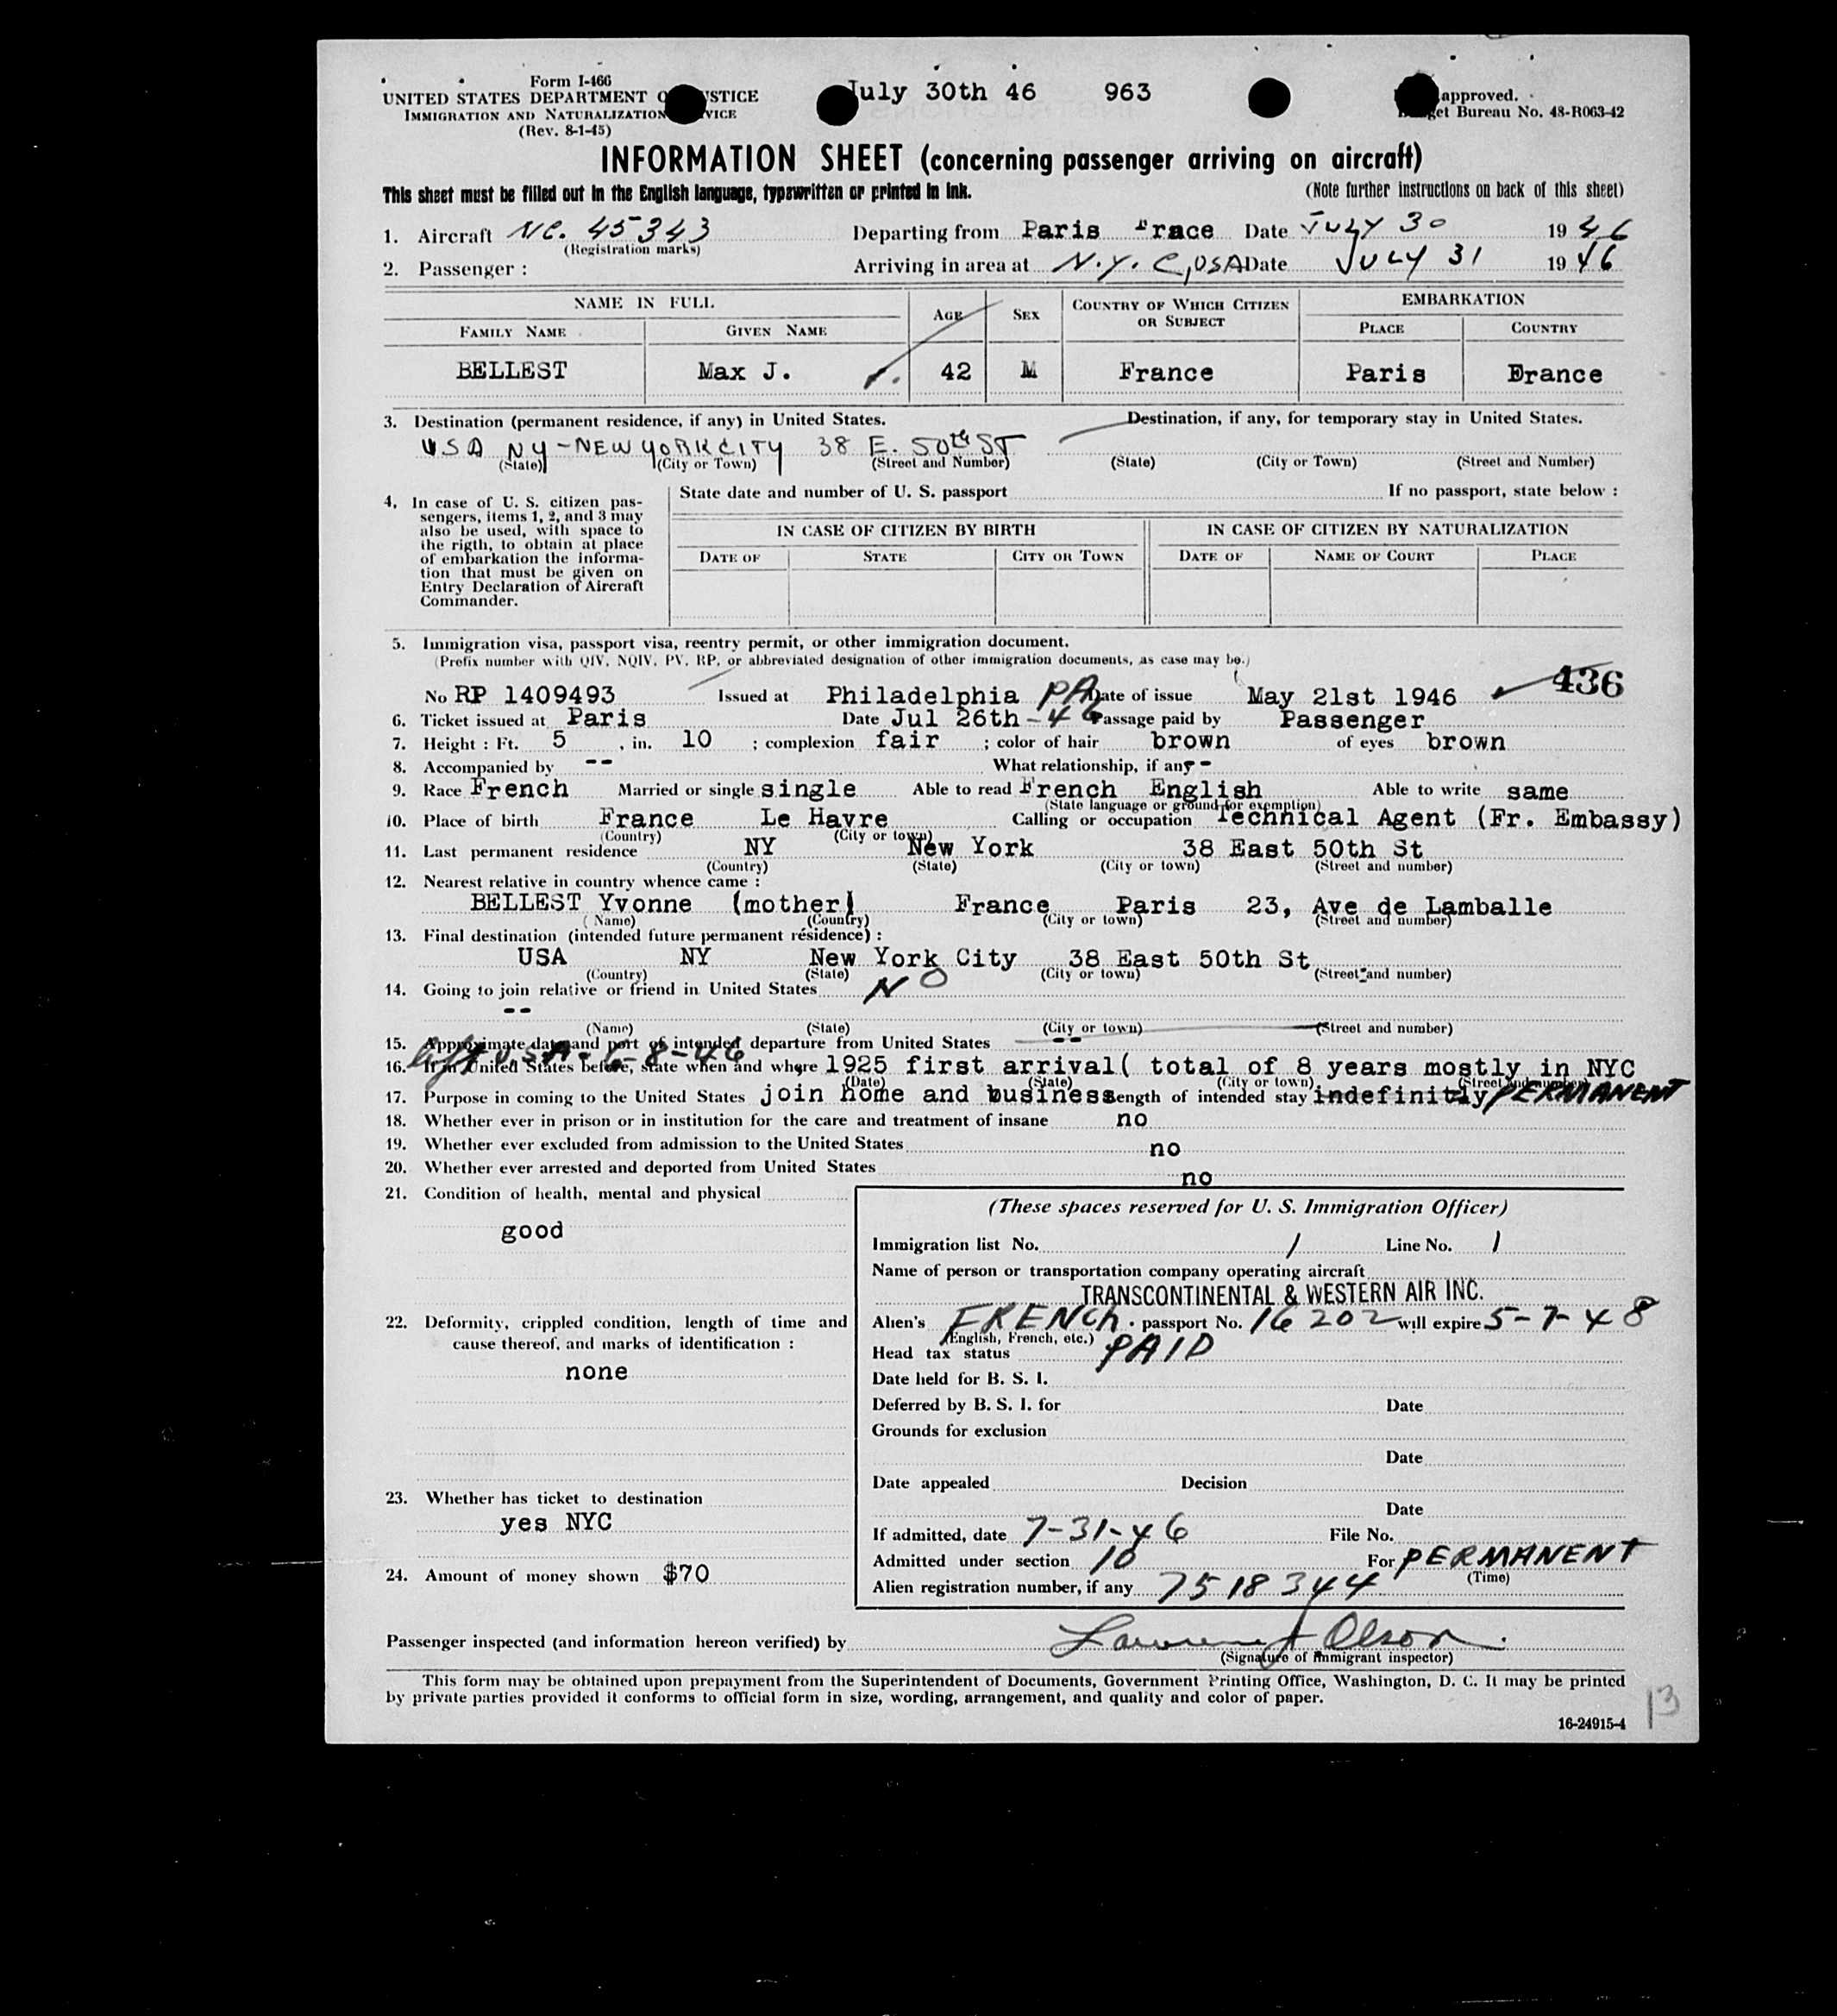 Form I-466
UNITED STATES DEPARTMENT O STICE
IMMIGRATION AND NATURALIZATION VICE
(Rev. 8-1-45)
July 30th 46 963
approved.
get Bureau No. 43-R063-42
INFORMATION SHEET (concerning passenger arriving on aircraft)
This sheet must be filled out in the English language, typewritten or printed in ink. (Note further instructions on back of this sheet)
1. Aircraft NC. 45343 Departing from Paris Frace Date JULY 30 1946
(Registration marks)
2. Passenger : Arriving in area at N.Y.C, USA Date JULY 31 1946
NAME IN FULL AGE SEX COUNTRY OF WHICH CITIZEN OR SUBJECT EMBARKATION
FAMILY NAME GIVEN NAME PLACE COUNTRY
BELLEST Max J. 42 M France Paris Erance
3. Destination (permanent residence, if any) in United States. Destination, if any, for temporary stay in United States.
USA NY-NEW YORK CITY 38 E. 50th ST
(State) (City or Town) (Street and Number) (State) (City or Town) (Street and Number)
4. In case of U. S. citizen pas-
sengers, items 1, 2, and 3 may
also be used, with space to
the rigth, to obtain at place
of embarkation the informa-
tion that must be given on
Entry Declaration of Aircraft
Commander.
State date and number of U. S. passport If no passport, state below :
IN CASE OF CITIZEN BY BIRTH IN CASE OF CITIZEN BY NATURALIZATION
DATE OF STATE CITY OR TOWN DATE OF NAME OF COURT PLACE
5. Immigration visa, passport visa, reentry permit, or other immigration document.
(Prefix number with QIV, NQIV, PV, RP, or abbreviated designation of other immigration documents, as case may be.)
436
No RP 1409493 Issued at Philadelphia PA Date of issue May 21st 1946
6. Ticket issued at Paris Date Jul 26th -46 Passage paid by Passenger
7. Height : Ft. 5 , in. 10 ; complexion fair ; color of hair brown of eyes brown
8. Accompanied by -- What relationship, if any -
9. Race French Married or single single Able to read French English Able to write same
(State language or ground for exemption)
10. Place of birth France Le Havre Calling or occupation Technical Agent (Fr. Embassy)
(Country) (City or town)
11. Last permanent residence NY New York 38 East 50th St
(Country) (State) (City or town) (Street and number)
12. Nearest relative in country whence came :
BELLEST Yvonne (mother) France Paris 23, Ave de Lamballe
(Name) (Country) (City or town) (Street and number)
13. Final destination (intended future permanent résidence) :
USA NY New York City 38 East 50th St
(Country) (State) (City or town) (Street and number)
14. Going to join relative or friend in United States NO
--
(Name) (State) (City or town) (Street and number)
15. Approximate date and port of intended departure from United States --
left U.S.A. 6-8-46
16. If in United States before, state when and where 1925 first arrival( total of 8 years mostly in NYC
(Date) (State) (City or town) (Street and number)
17. Purpose in coming to the United States join home and business Length of intended stay indefinitly PERMANENT
18. Whether ever in prison or in institution for the care and treatment of insane no
19. Whether ever excluded from admission to the United States no
20. Whether ever arrested and deported from United States no
21. Condition of health, mental and physical
good
22. Deformity, crippled condition, length of time and
cause thereof, and marks of identification :
none
23. Whether has ticket to destination
yes NYC
24. Amount of money shown $70
(These spaces reserved for U. S. Immigration Officer)
Immigration list No. 1 Line No. 1
Name of person or transportation company operating aircraft
TRANSCONTINENTAL & WESTERN AIR INC.
Alien's FRENCH. passport No. 16202 will expire 5-7-48
(English, French, etc.)
Head tax status PAID
Date held for B. S. I.
Deferred by B. S. I. for Date
Grounds for exclusion
Date
Date appealed Decision
Date
If admitted, date 7-31-46 File No.
Admitted under section 10 For PERMANENT
(Time)
Alien registration number, if any 7518344
Passenger inspected (and information hereon verified) by Lawrence J Olson
(Signature of immigrant inspector)
This form may be obtained upon prepayment from the Superintendent of Documents, Government Printing Office, Washington, D. C. It may be printed
by private parties provided it conforms to official form in size, wording, arrangement, and quality and color of paper.
16-24915-4
13